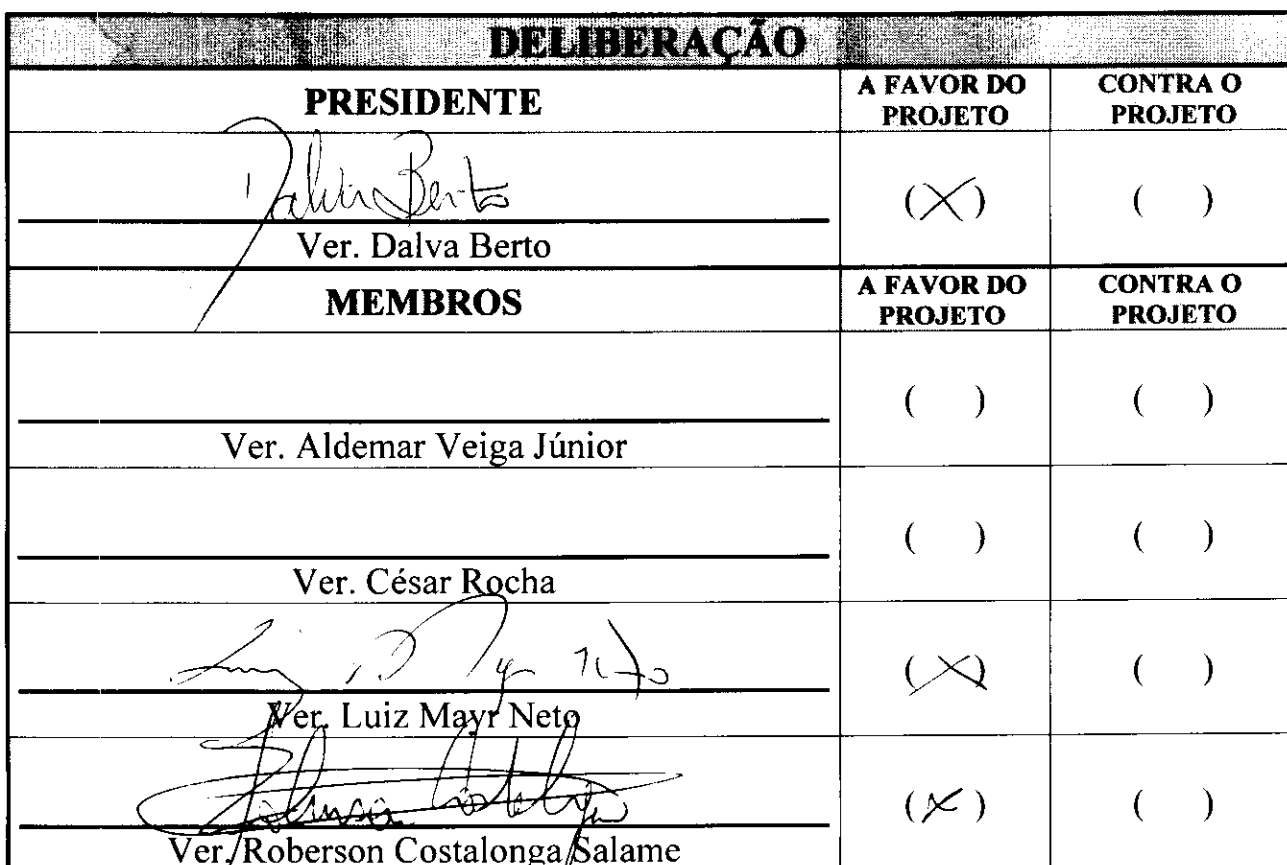 DELIBERAÇÃO
PRESIDENTE A FAVOR DO PROJETO CONTRA O PROJETO
Dalva Berto (X) ( )
Ver. Dalva Berto
MEMBROS A FAVOR DO PROJETO CONTRA O PROJETO
( ) ( )
Ver. Aldemar Veiga Júnior
( ) ( )
Ver. César Rocha
(X) ( )
Ver. Luiz Mayr Neto
(X) ( )
Ver. Roberson Costalonga Salame